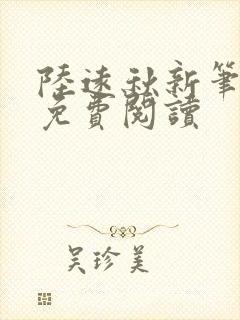 陸遠秋新筆
免費閱讀
吳珍美